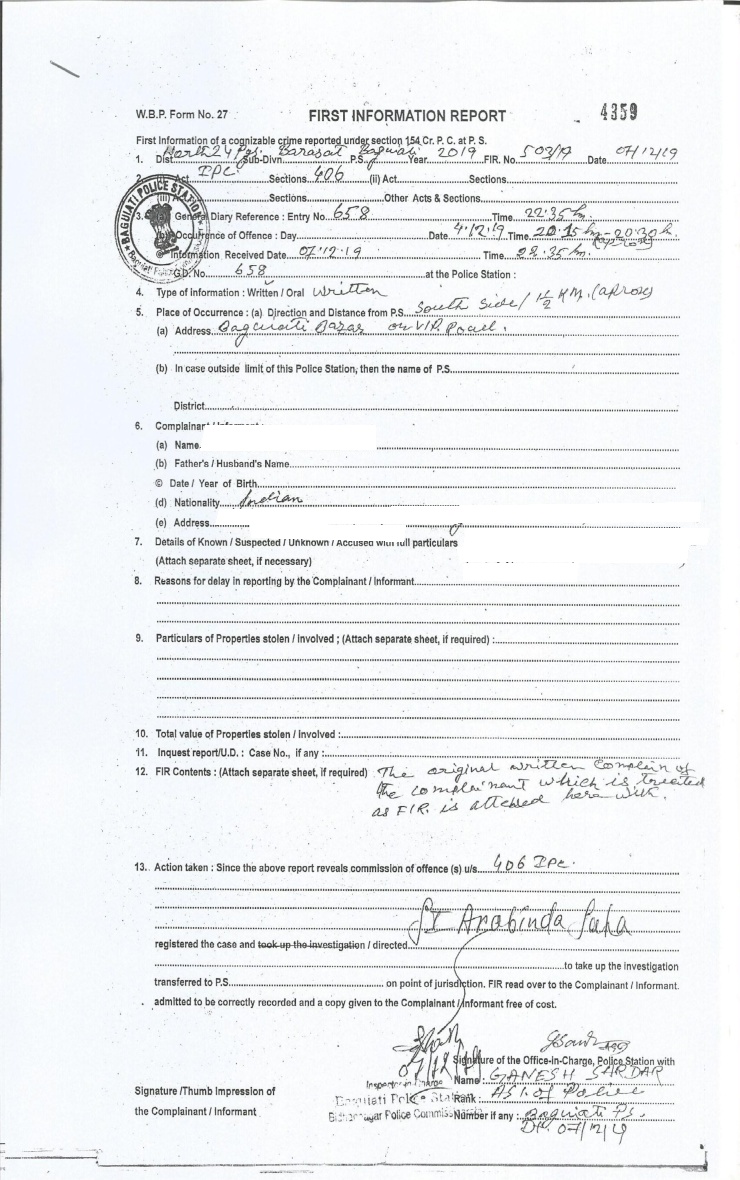 W.B.P. Form No. 27 FIRST INFORMATION REPORT 4359
First Information of a cognizable crime reported under section 154 Cr. P. C. at P. S.
1. Dist. North 24 Pgs. Sub-Divn. Barasat P.S. Baguiati Year 2019 FIR. No. 503/19 Date 07/12/19
2. Act IPC Sections 406 (ii) Act Sections
(iii) Act Sections Other Acts & Sections
3. (a) General Diary Reference : Entry No. 658 Time 22.35 hr.
(b) Occurrence of Offence : Day Date 4.12.19 Time 20.15 hr - 20.30 h.
© Information Received Date 07.12.19 Time 22.35 hr.
G.D. No. 658 at the Police Station :
BAGUIATI POLICE STATION
4. Type of Information : Written / Oral Written
5. Place of Occurrence : (a) Direction and Distance from P.S. South Side / 1 1/2 KM. (aprox)
(a) Address Baguiati Bazar on VIP Road.
(b) In case outside limit of this Police Station, then the name of P.S.
District
6. Complainant
(a) Name
(b) Father's / Husband's Name
© Date / Year of Birth
(d) Nationality Indian
(e) Address
7. Details of Known / Suspected / Unknown / Accused with full particulars
(Attach separate sheet, if necessary)
8. Reasons for delay in reporting by the Complainant / Informant
9. Particulars of Properties stolen / Involved ; (Attach separate sheet, if required) :
10. Total value of Properties stolen / Involved :
11. Inquest report/U.D. : Case No., if any :
12. FIR Contents : (Attach separate sheet, if required) The original written Complain of
the complainant which is treated
as FIR. is attched here with.
13. Action taken : Since the above report reveals commission of offence (s) u/s 406 IPC.
SI Arabinda Saha
registered the case and took up the investigation / directed
to take up the investigation
transferred to P.S. on point of jurisdiction. FIR read over to the Complainant / Informant.
admitted to be correctly recorded and a copy given to the Complainant / Informant free of cost.
Signature of the Office-in-Charge, Police Station with
Inspector-in-Charge Name : GANESH SARDAR
Signature /Thumb Impression of
Baguiati Police Station Rank : ASI. of Police
the Complainant / Informant
Bidhannagar Police Commissionerate Number if any : Baguiati P.S.
Dt. 07/12/19